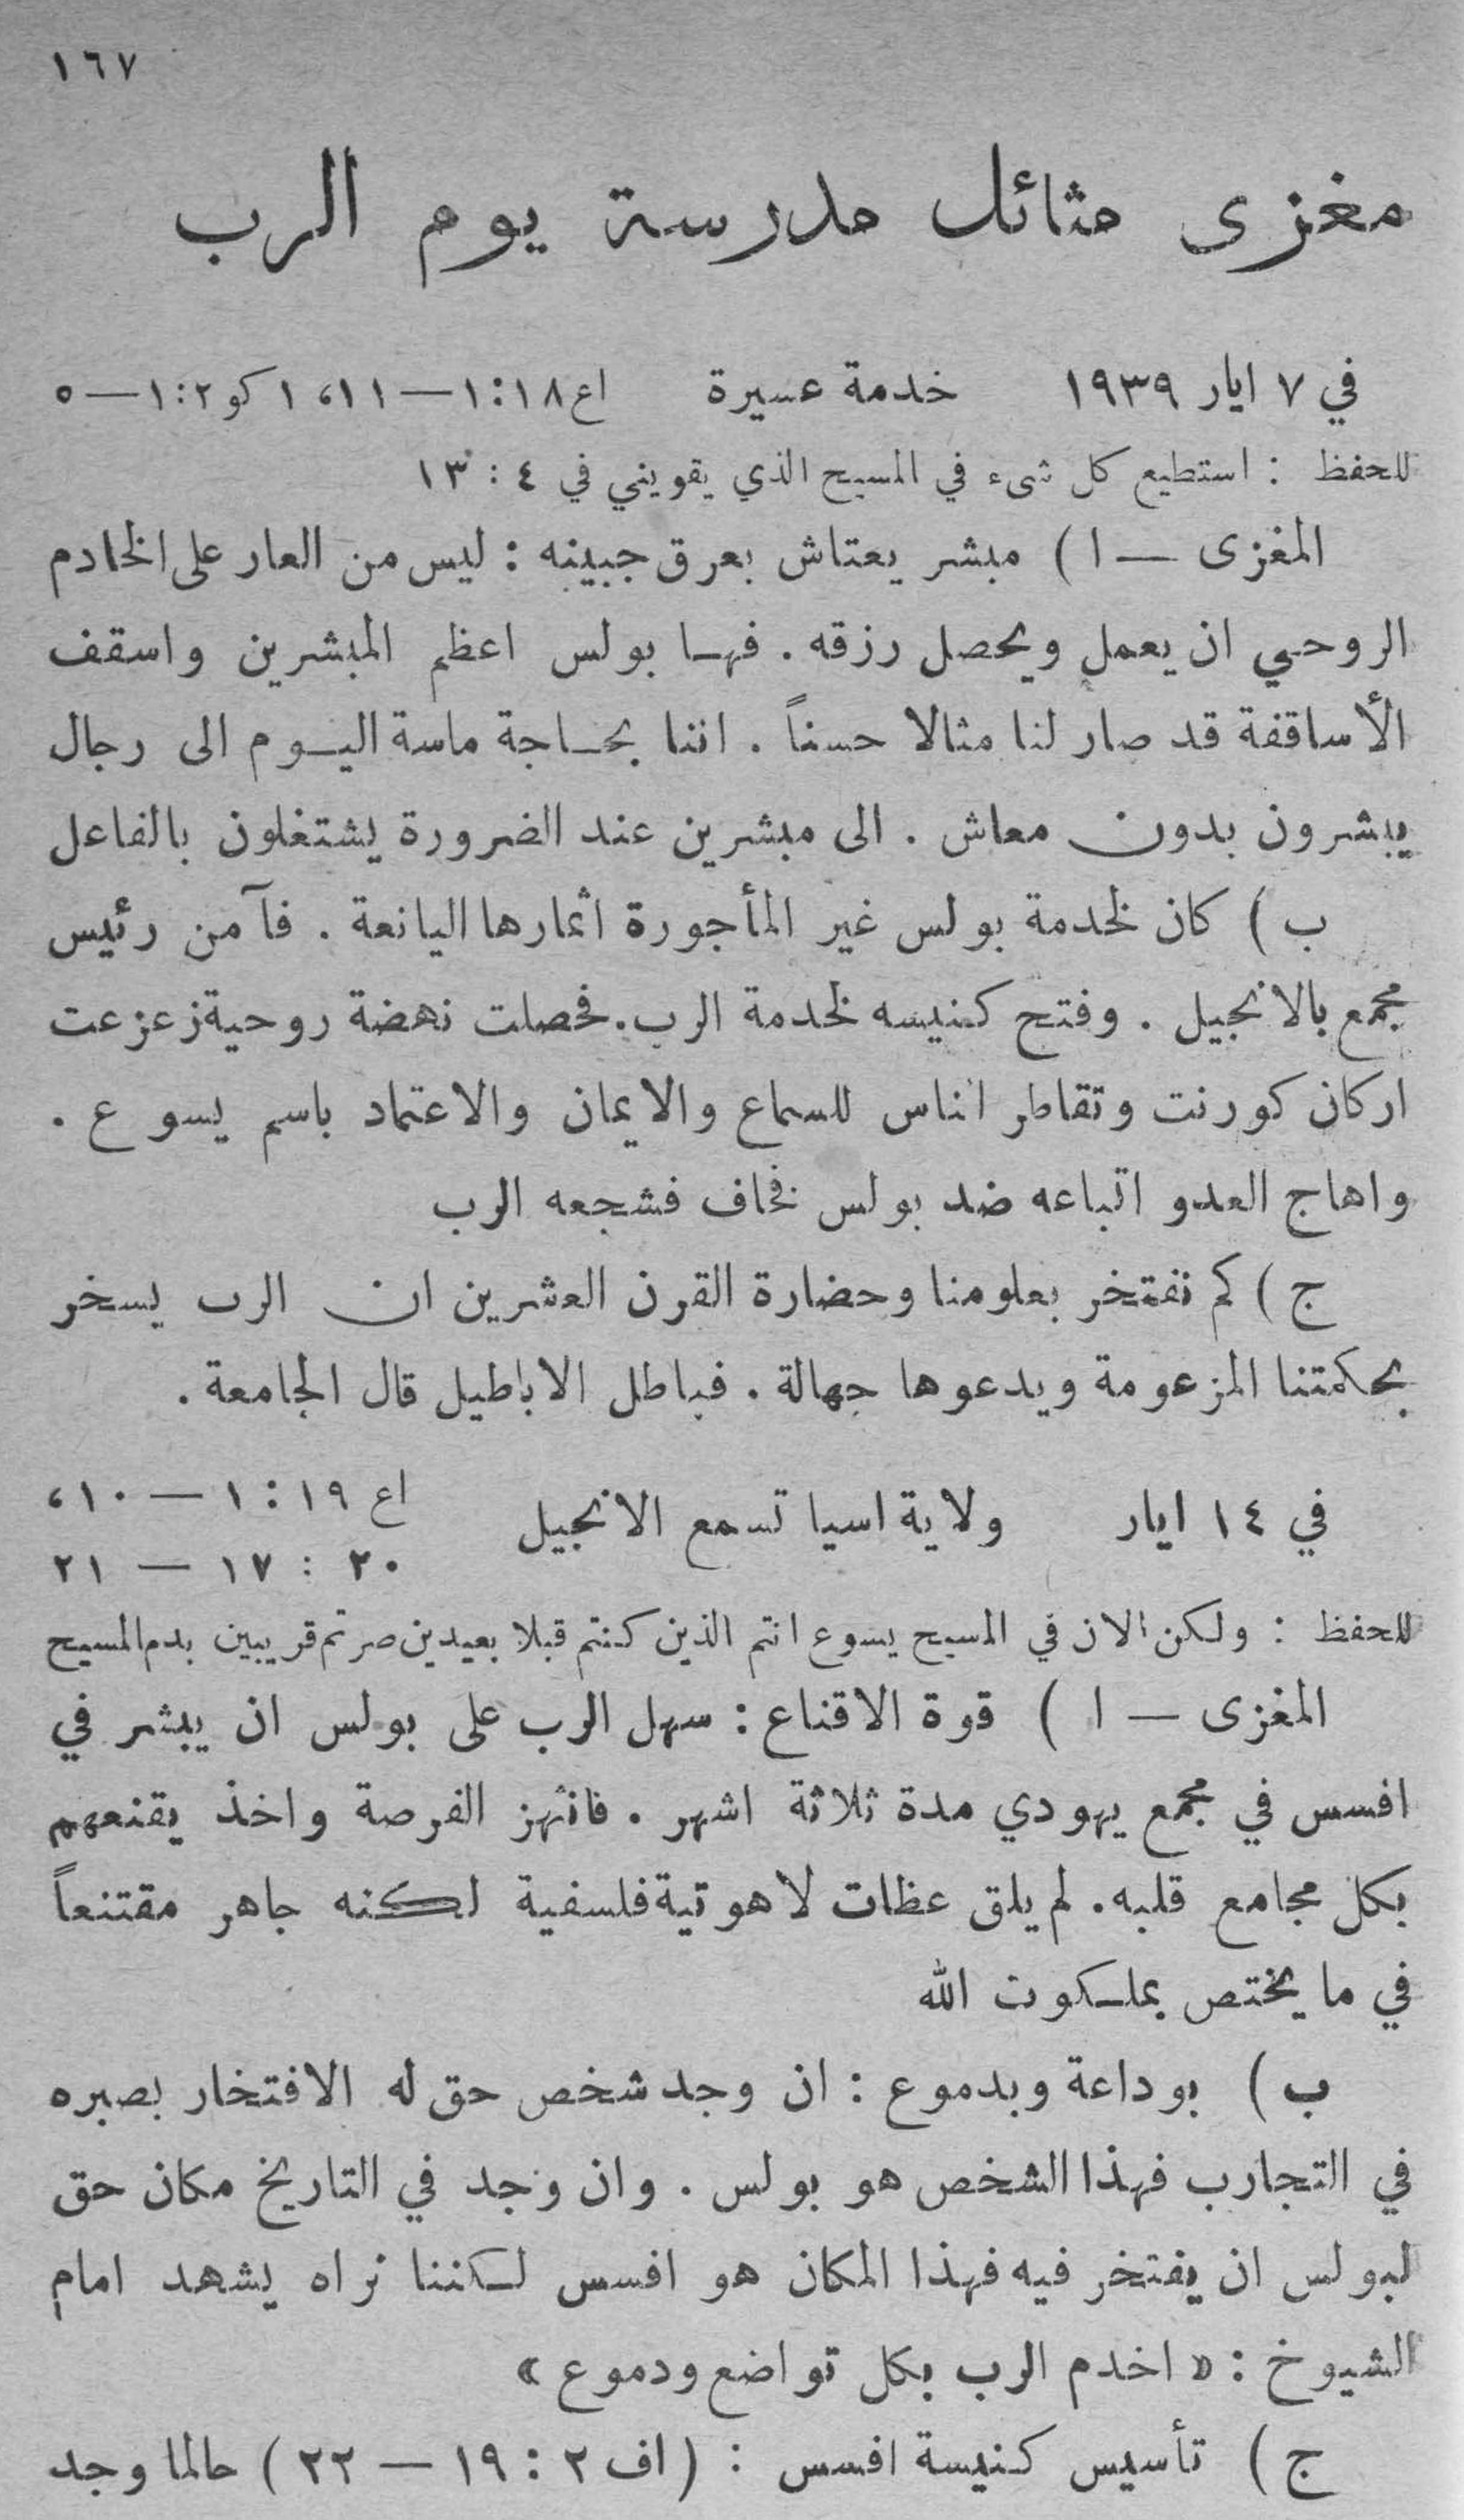 ١٦٧
مغزى مثائل مدرسة يوم الرب
في ٧ ايار ١٩٣٩ خدمة عسيرة اع ١٨:١—١١، ١ كو ٢:١—٥
للحفظ : استطيع كل شىء في المسيح الذي يقويني في ٤ : ١٣
المغزى — ا ) مبشر يعتاش بعرق جبينه : ليس من العار على الخادم
الروحي ان يعمل ويحصل رزقه . فهـا بولس اعظم المبشرين واسقف
الأساقفة قد صار لنا مثالا حسناً . اننا بحـاجة ماسة اليـوم الى رجال
يبشرون بدون معاش . الى مبشرين عند الضرورة يشتغلون بالفاعل
ب ) كان لخدمة بولس غير المأجورة اثمارها اليانعة . فآمن رئيس
مجمع بالانجيل . وفتح كنيسه لخدمة الرب. فحصلت نهضة روحية زعزعت
اركان كورنت وتقاطر اناس للسماع والايمان والاعتماد باسم يسوع .
واهاج العدو اتباعه ضد بولس فخاف فشجعه الرب
ج ) كم نفتخر بعلومنا وحضارة القرن العشرين ان الرب يسخر
بحكمتنا المزعومة ويدعوها جهالة . فباطل الاباطيل قال الجامعة .
في ١٤ ايار ولاية اسيا تسمع الانجيل اع ١٩ : ١ — ١٠،
٢٠ : ١٧ — ٢١
للحفظ : ولكن الان في المسيح يسوع انتم الذين كنتم قبلا بعيدين صرتم قريبين بدم المسيح
المغزى — ا ) قوة الاقناع : سهل الرب على بولس ان يبشر في
افسس في مجمع يهودي مدة ثلاثة اشهر . فانتهز الفرصة واخذ يقنعهم
بكل مجامع قلبه. لم يلق عظات لاهوتية فلسفية لكنه جاهر مقتنعاً
في ما يختص بملـكوت الله
ب ) بوداعة وبدموع : ان وجد شخص حق له الافتخار بصبره
في التجارب فهذا الشخص هو بولس . وان وجد في التاريخ مكان حق
لبولس ان يفتخر فيه فهذا المكان هو افسس لـكننا نراه يشهد امام
الشيوخ : « اخدم الرب بكل تواضع ودموع »
ج ) تأسيس كنيسة افسس : ( اف ٢ : ١٩ — ٢٢ ) حالما وجد